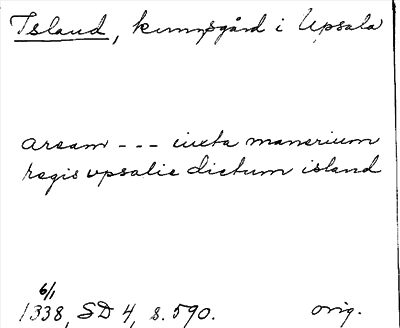 Island, kunngsgård i Upsala
aream --- iuxta manerium
regis vpsalie dictum island
6/1
1338, SD 4, s. 590. orig.